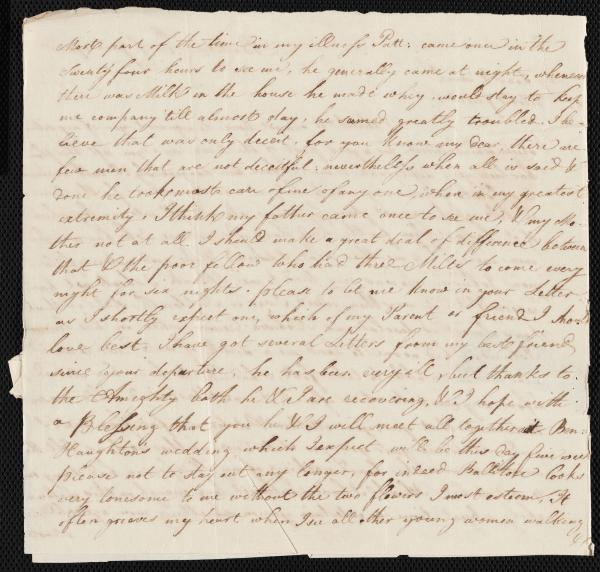 Most part of the time in my illness Patt: came once in the
twenty four hours to see me, he generally came at night, whenever
there was Milk in the house he made whey, would stay to keep
me company till almost day, he seemed greatly troubled. I be-
lieve that was only deceit, for you know my dear, there are
few men that are not deceitful; nevertheless when all is said &
done he took most care of me of any one, when in my greatest
extremity, I think my father came once to see me, & my Mo-
ther not at all. I should make a great deal of difference between
that & the poor fellow who had three Miles to come every
night for six nights. please to let me know in your Letter
as I shortly expect one, which of my Parent or friend I should
love best, I have got several Letters from my best friend
since your departure, he has been very ill, but thanks to
the Almighty both he & I are recovering, & I hope with
a Blessing that you he & I will meet all together at Ben
Haughtons wedding which I expect will be this day five weeks
please not to stay out any longer, for indeed Ballitore looks
very lonesome to me without the two flowers I most esteem. It
often grieves my heart when I see all other young women walking